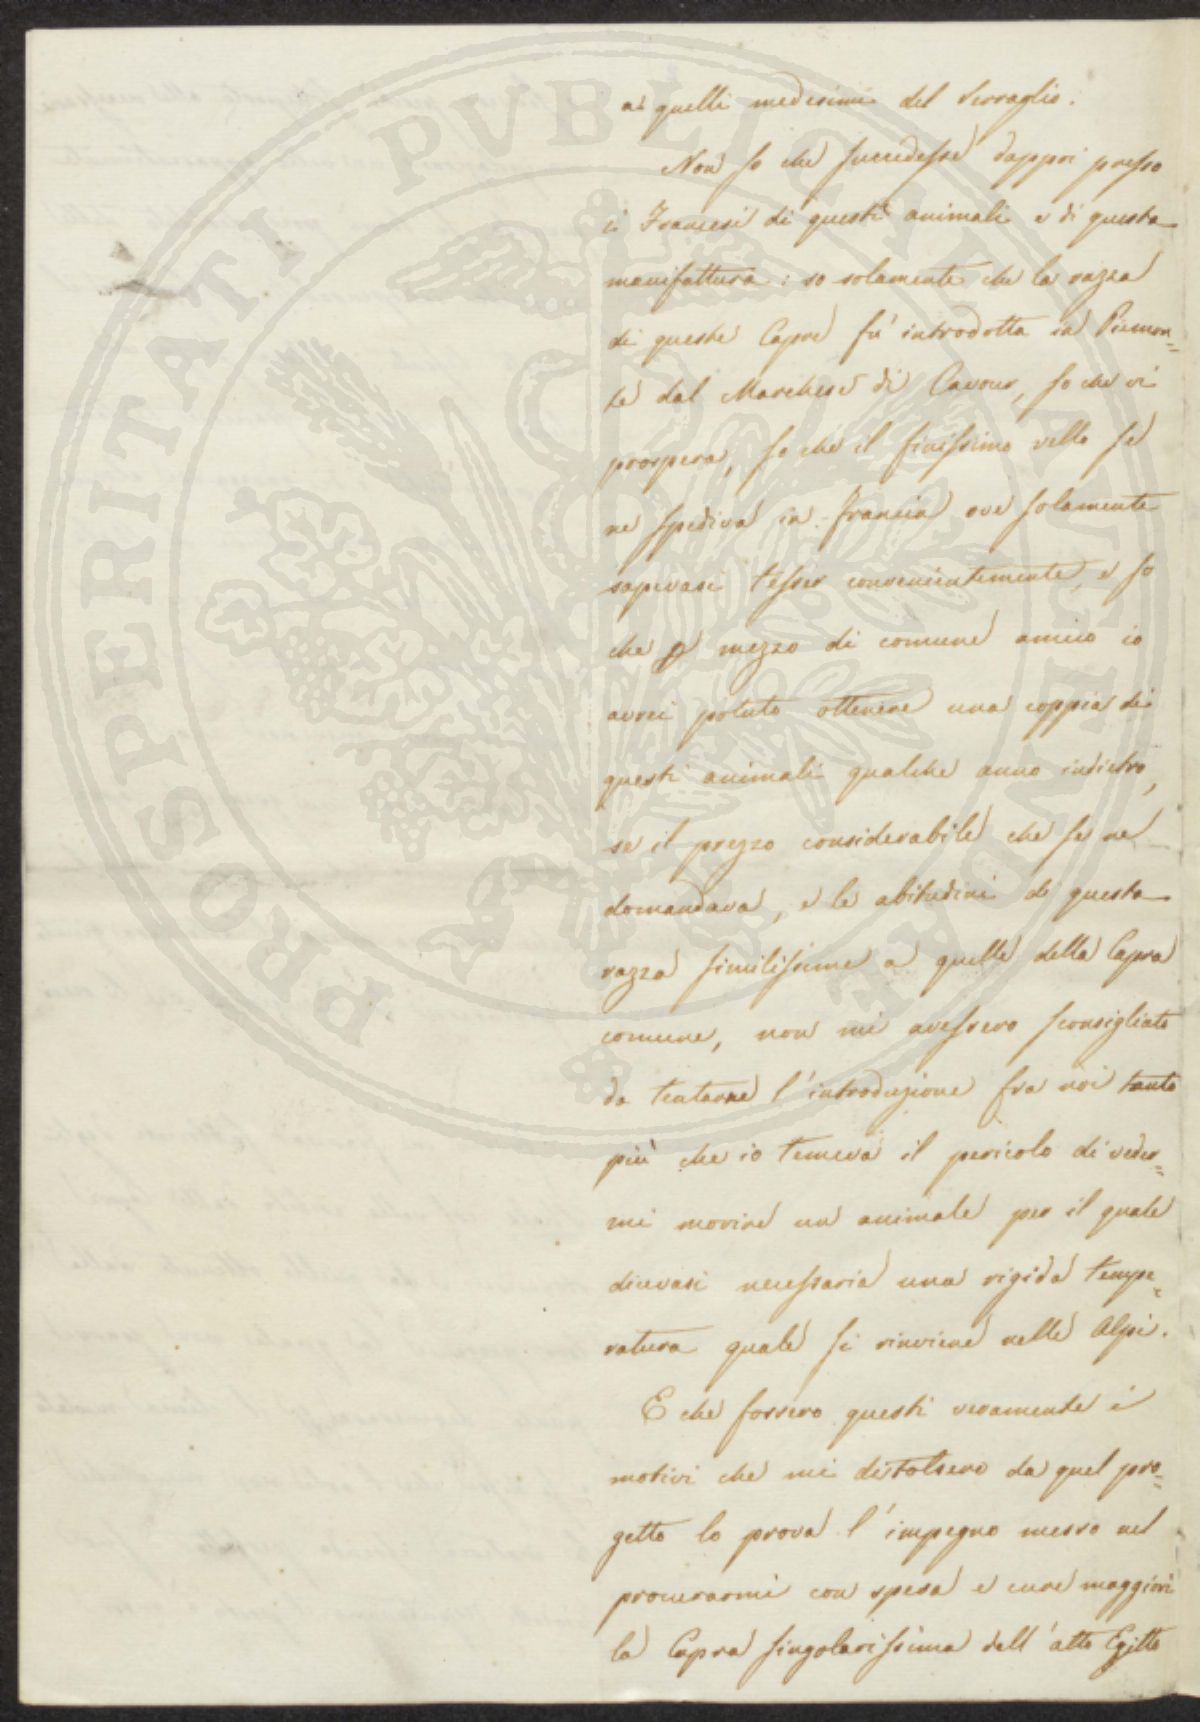 ai quelli medesimi del Serraglio.
Non so che succedesse dappoi presso
i Francesi di questi animali e di questa
manifattura: so solamente che la razza
di queste Capre fu' introdotta in Piemon=
te dal Marchese di Cavour, so che vi
prospera, so che il finissimo vello se
ne spediva in Francia ove solamente
sapevasi tesser convenientemente, e so
che p mezzo di comune amico io
avrei potuto ottenere una coppia di
questi animali qualche anno indietro,
se il prezzo considerabile che se ne
domandava, e le abitudini di questa
razza similissime a quelle della Capra
comune, non mi avessero sconsigliato
da tentarne l'introduzione fra noi tanto
più che io temeva il pericolo di veder=
mi morire un animale per il quale
dicevasi necessaria una rigida tempe=
ratura quale si rinviene nelle Alpi.
E che fossero questi veramente i
motivi che mi distolsero da quel pro=
getto lo prova l'impegno messo nel
procurarmi con spesa e cure maggiori
la Capra singolarissima dell'alto Egitto
PROSPERITATI PVBLICAE AVGENDAE